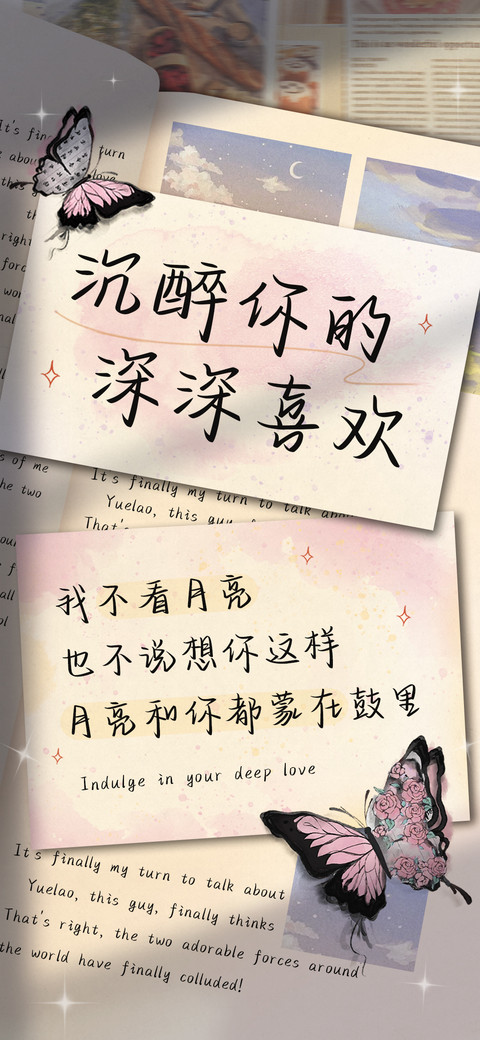 沉醉你的
深深喜欢
It's finally my turn to talk about
Yuelao, this guy
That's
我不看月亮
也不说想你这样
月亮和你都蒙在鼓里
Indulge in your deep love
It's finally my turn to talk about
Yuelao, this guy, finally thinks
That's right, the two adorable forces around
the world have finally colluded!